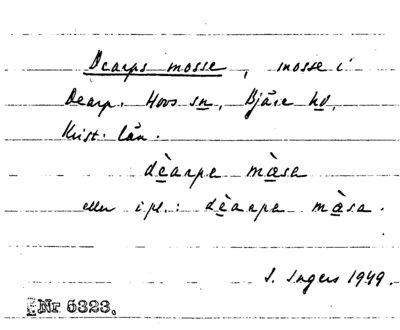 Dearps mosse, mosse i
Dearp. Hovs sn, Bjäre hd,
Krist. län.
dèarpe mæ̀sa
eller i pl.: dèarpe mæ̀sa.
I. Ingers 1949.
Nr 5323.